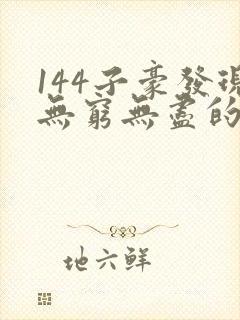 144子豪發現
無窮無盡的
地六鮮